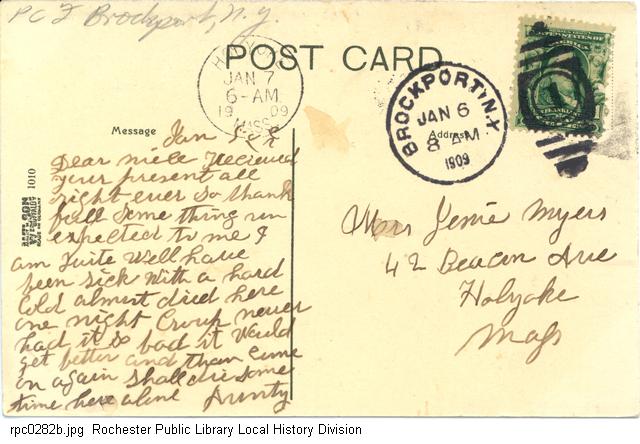 PC F Brockport, N.Y.
POST CARD
HOLYOKE
JAN 7
6-AM
1909
MASS.
BROCKPORT, N.Y.
JAN 6
8 AM
1909
Message
Address
1010
Jan 5th
Dear niece I recieved
your present all
right ever so thank
full Some thing un
expected to me I
am Quite Well have
been sick with a hard
Cold almost died here
one night Croup never
had it so bad it Would
get better and than come
on again Shall die some
time here alone Aunty
Mrs Jenie Myers
42 Beacon Ave
Holyoke
Mass
rpc0282b.jpg Rochester Public Library Local History Division